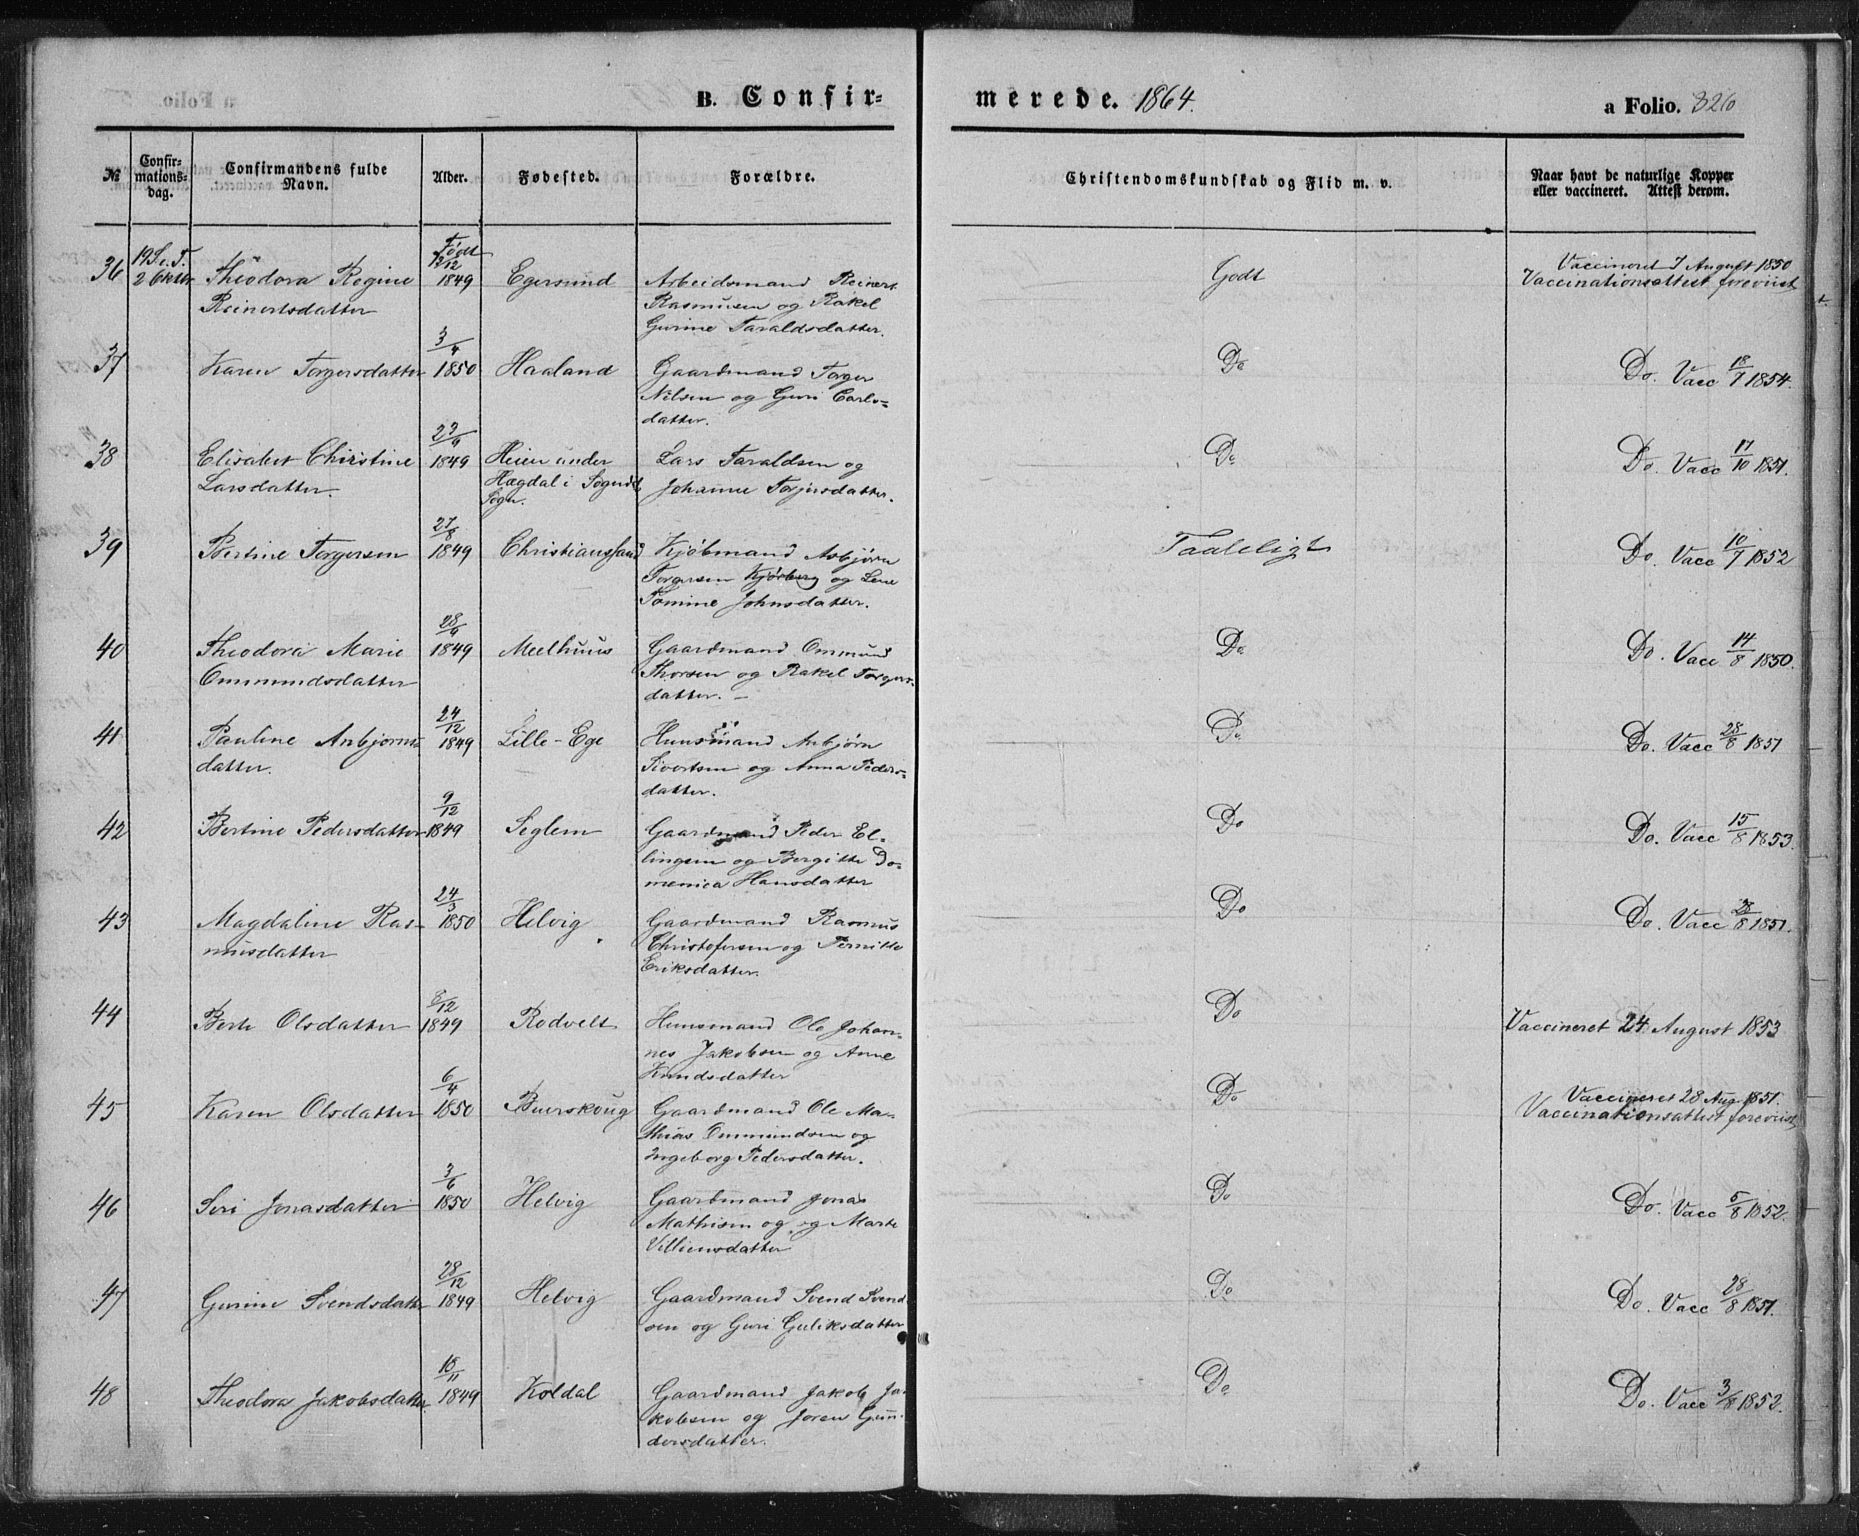 B. Confir-
merede. 1864.
a Folio. 326
№
Confir-
mations-
dag.
Confirmandens fulde
Navn.
Alder.
Fødested.
Forældre.
Christendomskundskab og Flid m. v.
Naar havt de naturlige Kopper
eller vaccineret. Attest derom.
36
19 S. e. T.
2 Oktbr
Theodora Regine
Reinertsdatter
Født
12/12
1849
Egersund
Arbeidsmand Reinert
Rasmusen og Rakel
Gurine Taraldsdatter.
Godt
Vaccineret 7 August 1850
Vaccinationsattest foreviist
37
Karen Torgersdatter
3/4
1850
Haaland
Gaardmand Torger
Nilsen og Guri Carls-
datter.
Do
Do. Vacc 18/7 1854.
38
Elisabet Christine
Larsdatter.
1849
Heien under
Hægdal i Sogndal
Sogn.
Lars Taraldsen og
Johanne Torjersdatter.
Do
Do. Vacc 17/10 1851.
39
Bertine Torgersen
27/8
1849
Christianssand
Kjøbmand Asbjørn
Torgersen Kjørberg og Lene
Tomine Johnsdatter.
Taaleligt
Do. Vacc 10/7 1852
40
Theodora Marie
Ommundsdatter
28/9
1849
Meelhuus
Gaardmand Ommund
Thorsen og Rakel Torgers-
datter. –
Do
Do. Vacc 14/8 1850.
41
Pauline Asbjørns-
datter.
24/12
1849
Lille-Ege
Huusmand Asbjørn
Sivertsen og Anna Peders-
datter.
Do
Do. Vacc 28/8 1851
42
Bertine Pedersdatter
9/12
1849
Seglem
Gaardmand Peder El-
lingsen og Bergitte Do-
menica Hansdatter
Do
Do. Vacc 15/8 1853.
43
Magdaline Ras-
musdatter
24/3
1850
Helvig
Gaardmand Rasmus
Christofersen og Pernille
Eriksdatter.
Do
Do. Vacc 28/8 1851.
44
Berte Olsdatter
8/12
1849
Rodvelt
Huusmand Ole Johan-
nes Jakobsen og Anne
Knudsdatter
Do
Vaccineret 24 August 1853
45
Karen Olsdatter
6/4
1850
Buerskoug
Gaardmand Ole Ma-
thias Ommundsen og
Ingeborg Pedersdatter.
Do
Vaccineret 28 Aug. 1851.
Vaccinationsattest foreviist
46
Siri Jonasdatter
3/6
1850
Helvig
Gaardmand Jonas
Mathisen og og Marte
Villiemsdatter
Do
Do. Vacc 5/8 1852.
47
Gurine Svendsdatter
28/12
1849
Helvig
Gaardmand Svend Svend-
sen og Guri Guliksdatter
Do
Do. Vacc 28/8 1851.
48
Theodora Jakobsdatter
18/11
1849
Koldal
Gaardmand Jakob Ja-
kobsen og Joren Gun-
dersdatter.
Do
Do. Vacc 3/8 1852.